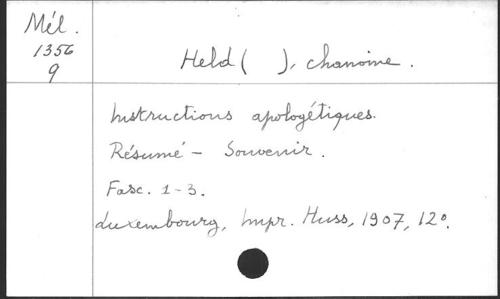 Mél.
1356
9
Held ( ), chanoine.
Instructions apologétiques.
Résumé - Souvenir.
Fasc. 1-3.
Luxembourg, Impr. Huss, 1907, 12º.